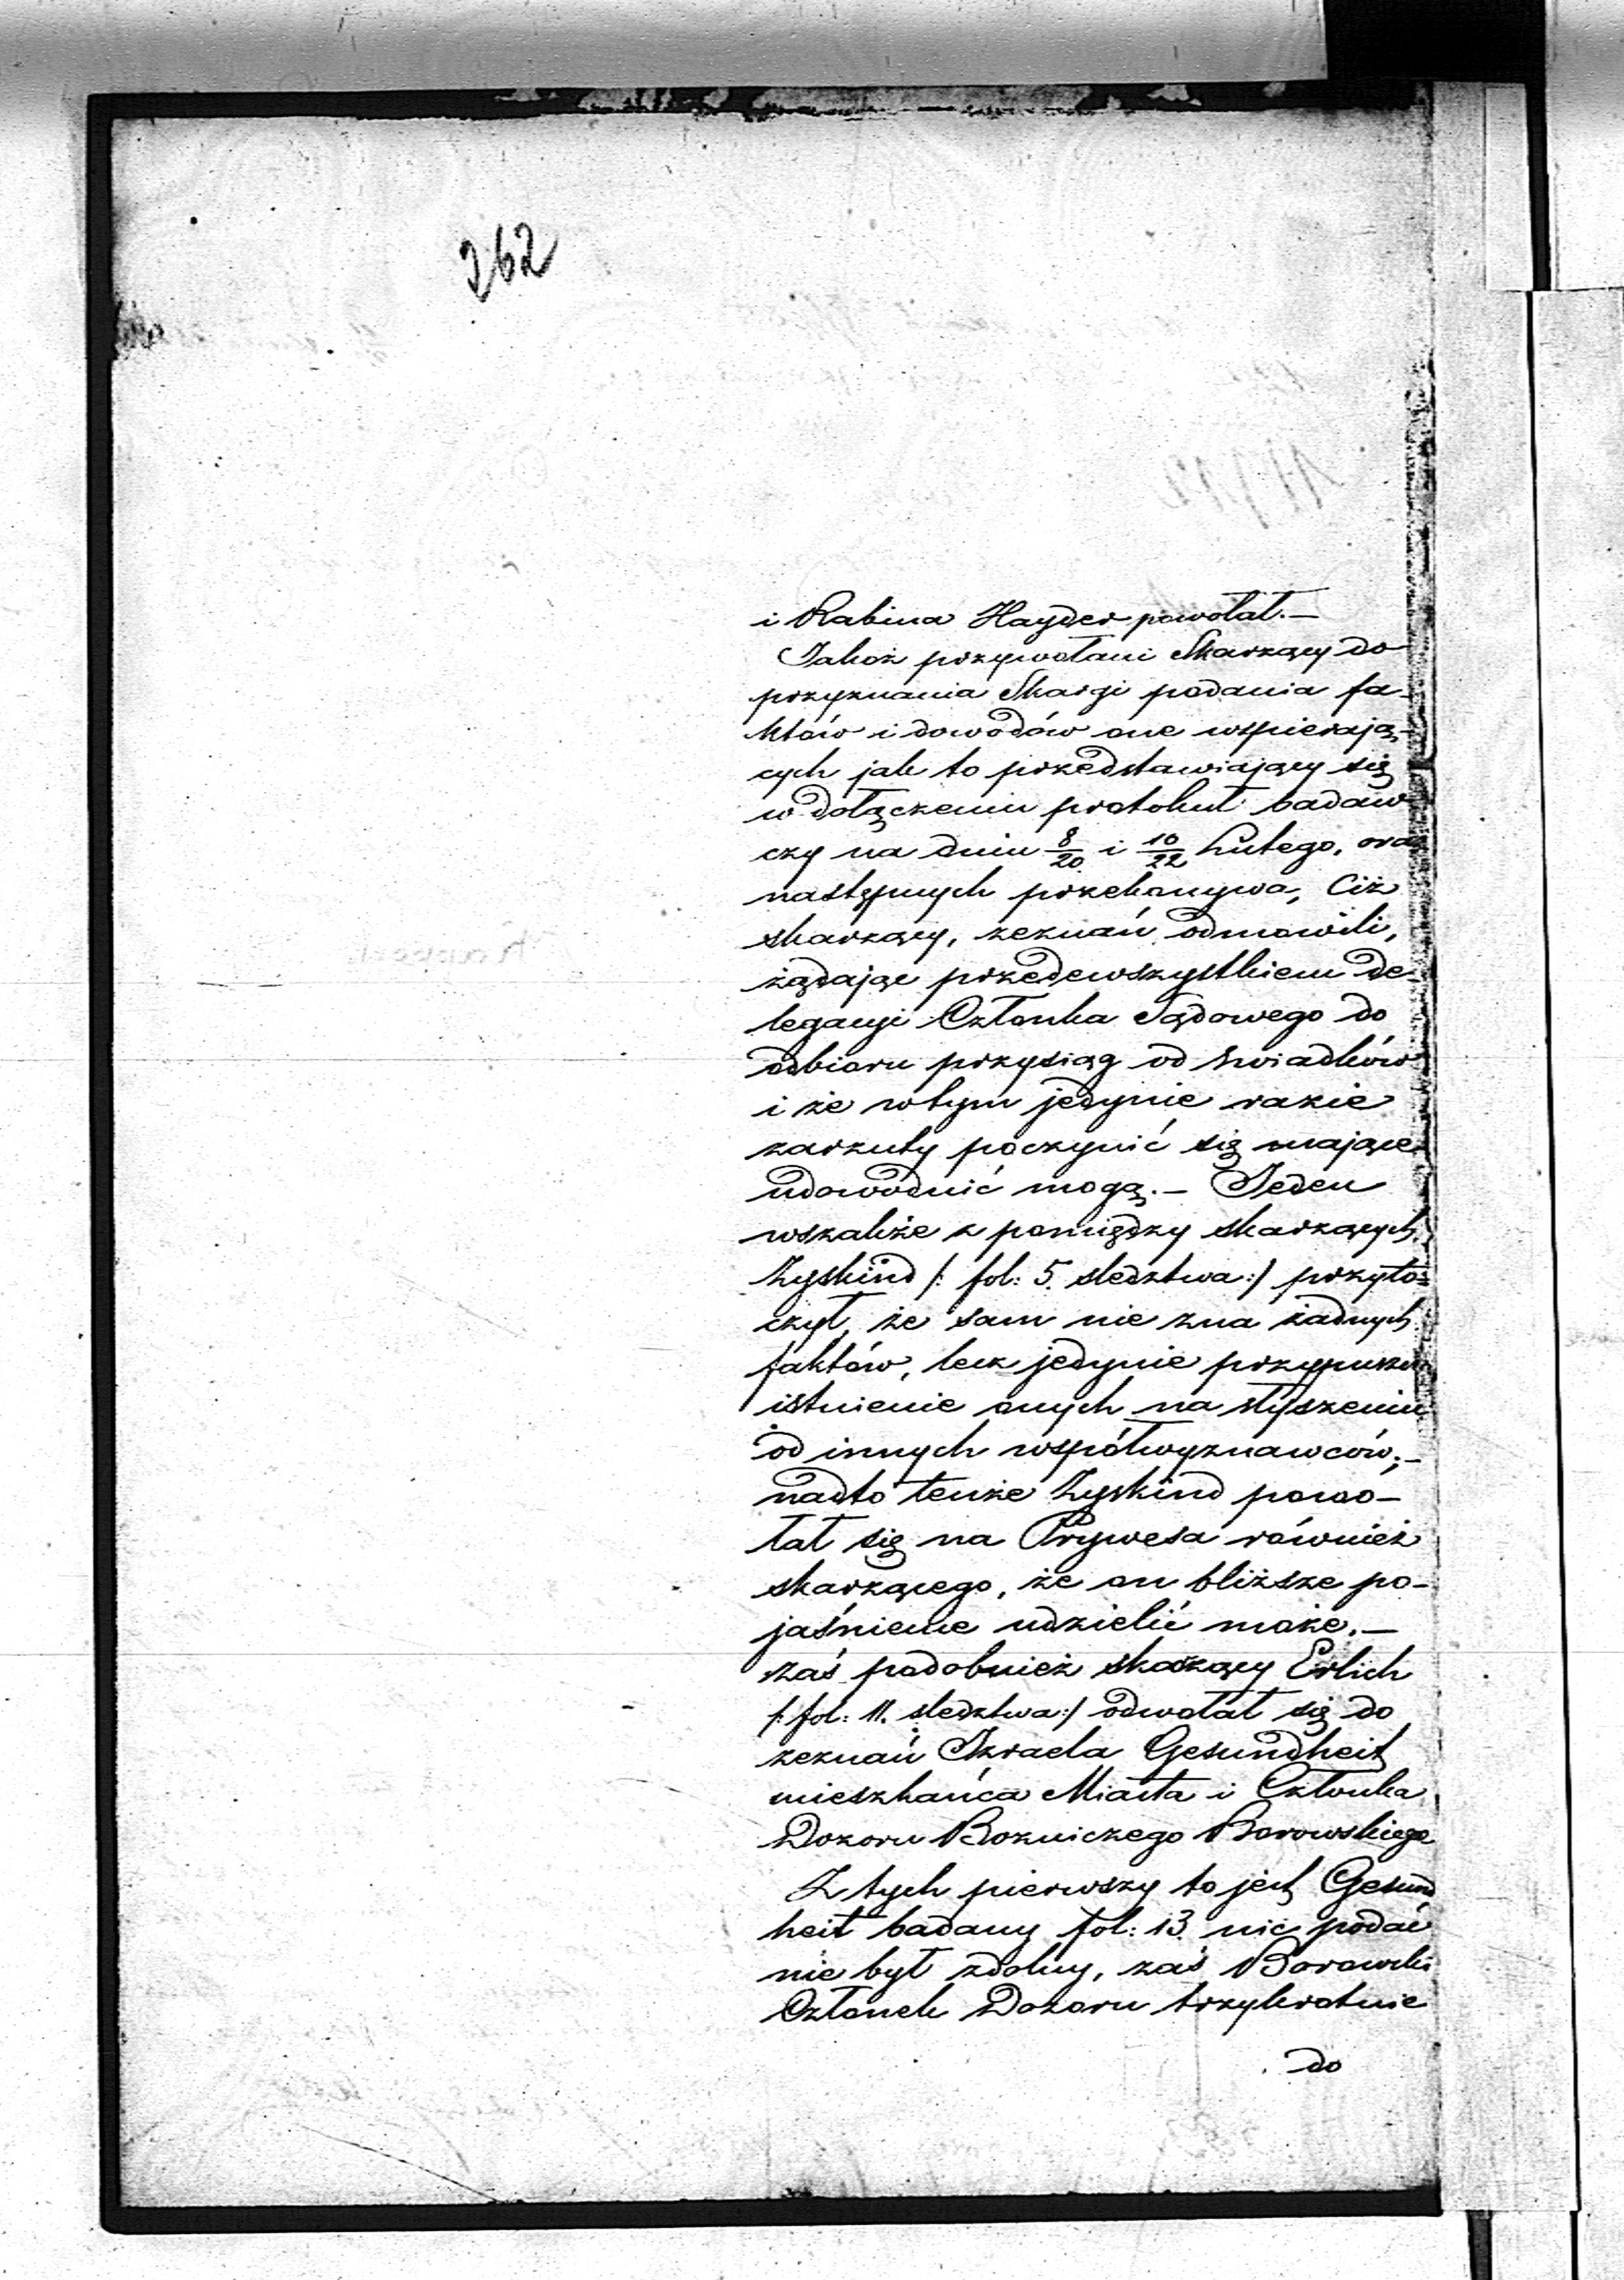 262
i Rabina Hayder powołał.—
Jakoż przywołani Skarżący do
przyznania Skargi podania fa-
któw i dowodów one wspierają-
cych jak to przedstawiający się
w dołączeniu protokuł badaw
czy na dniu 8/20 i 10/22 Lutego, oraz
następnych przekonywa, Ciż
skarżący, zeznań odmówili,
żądając przedewszystkiem de-
legacyi Członka Sądowego do
odbioru przysiąg od swiadków
i że w tym jedynie razie
zarzuty poczynić się mające
udowodnić mogą.— Jeden
wszakże z pomiędzy skarżących
Zyskind /: fol: 5. sledztwa:/ przyto-
czył, że sam nie zna żadnych
faktów, lecz jedynie przypuszcza
istnienie onych na słyszeniu
od innych współwyznawców;—
nadto tenże Zyskind powo-
łał się na Prywesa również
skarżącego, że on bliższe po-
jaśnienie udzielić może.—
zaś podobnież skarżący Erlich
/: fol: 11. sledztwa:/ odwołał się do
zeznań Izraela Gesundheit
mieszkańca Miasta i Członka
Dozoru Bozniczego Borowskiego
Z tych pierwszy to jest Gesund
heit badany fol: 13. nic podać
nie był zdolny, zaś Borowski
Członek Dozoru trzykrotnie
do